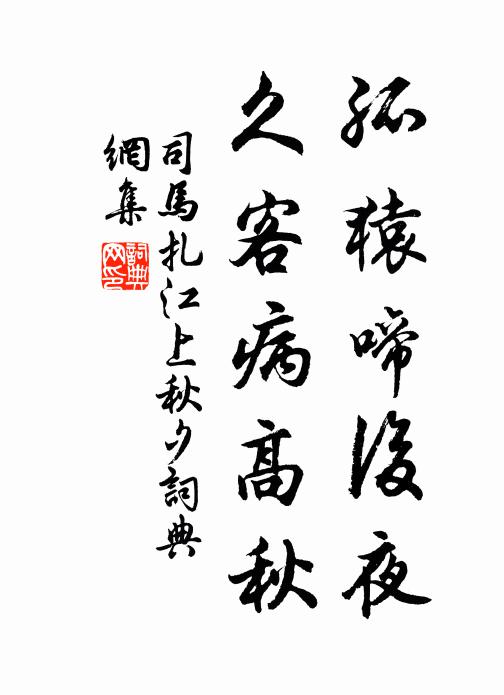 孤猿啼後夜
久客病高秋
司馬扎江上秋夕詞典
網集
詞典
网印